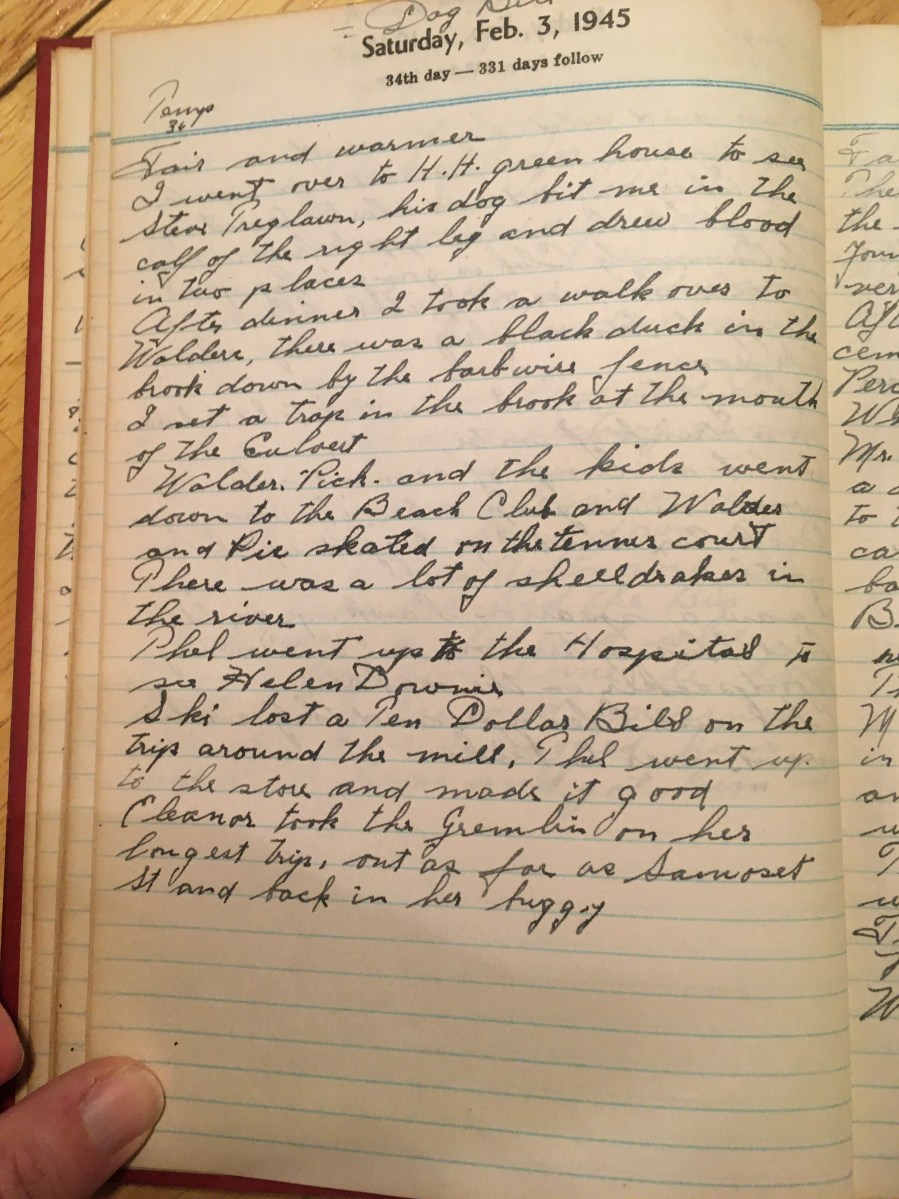 - Dog
Saturday, Feb. 3, 1945
34th day — 331 days follow
Temp
36
Fair and warmer
I went over to H.H. green house to see
Steve Treglawn, his dog bit me in the
calf of the right leg and drew blood
in two places
After dinner I took a walk over to
Walders, there was a black duck in the
brook down by the barb wire fence
I set a trap in the brook at the mouth
of the Culvert
Walder. Pick. and the kids went
down to the Beach Club and Walder
and Pic skated on the tennis court
There was a lot of shelldrakes in
the river
Phel went up to the Hospital to
see Helen Downie
Ski lost a Ten Dollar Bill on the
trip around the mill, Phel went up
to the store and made it good
Eleanor took the Gremlin on her
longest trip, out as far as Samoset
St and back in her buggy
the
cem
Mr.
a
to
in